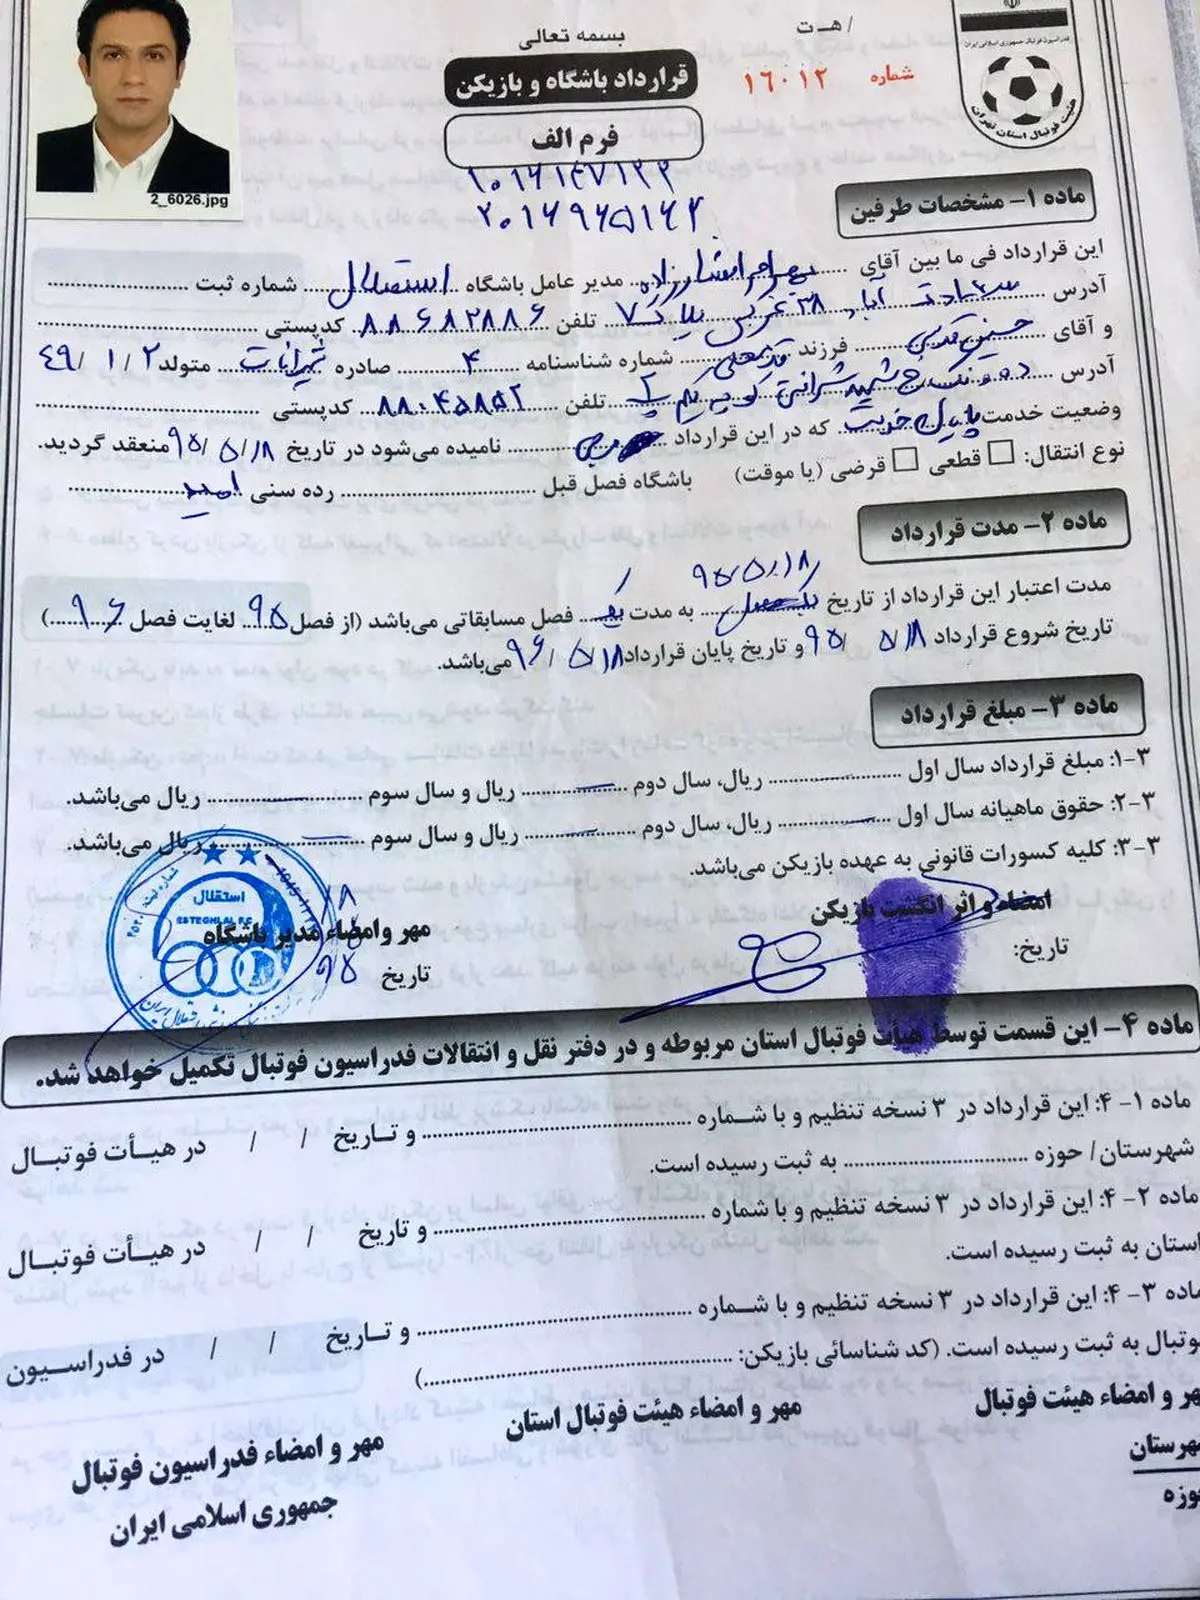 بسمه تعالی
/ هـ ت
فدراسیون فوتبال جمهوری اسلامی ایران
هیئت فوتبال استان تهران
شماره ۱۶۰۱۲
قرارداد باشگاه و بازیکن
فرم الف
2_6026.jpg
ماده ۱- مشخصات طرفین
این قرارداد فی ما بین آقای بهرام افشارزاده مدیر عامل باشگاه استقلال شماره ثبت
آدرس سعادت آباد ۳۸ غربی پلاک ۷ تلفن ۸۸۶۸۲۸۸۶ کدپستی
و آقای فرزند شماره شناسنامه ۴ صادره متولد ۲ / ۱ / ۴۹
آدرس ده ونک تلفن ۸۸۰۴۵۸۵۲ کدپستی
وضعیت خدمت پایان خدمت که در این قرارداد مربی نامیده می‌شود در تاریخ ۹۵/۵/۱۸ منعقد گردید.
نوع انتقال: قطعی قرضی (یا موقت) باشگاه فصل قبل رده سنی امید
ماده ۲- مدت قرارداد
۹۵/۵/۱۸
مدت اعتبار این قرارداد از تاریخ به مدت یک فصل مسابقاتی می‌باشد (از فصل ۹۵ لغایت فصل ۹۶)
تاریخ شروع قرارداد ۹۵/ ۵/۱۸ و تاریخ پایان قرارداد ۹۶/ ۵/۱۸ می‌باشد.
ماده ۳- مبلغ قرارداد
۳-۱: مبلغ قرارداد سال اول ریال، سال دوم ریال و سال سوم ریال می‌باشد.
۳-۲: حقوق ماهیانه سال اول ریال، سال دوم ریال و سال سوم ریال می‌باشد.
۳-۳: کلیه کسورات قانونی به عهده بازیکن می‌باشد.
امضاء و اثر انگشت بازیکن
تاریخ:
مهر و امضاء مدیر باشگاه
تاریخ ۹۵
استقلال
ESTEGHLAL F.C
ماده ۴- این قسمت توسط هیأت فوتبال استان مربوطه و در دفتر نقل و انتقالات فدراسیون فوتبال تکمیل خواهد شد.
ماده ۱- ۴: این قرارداد در ۳ نسخه تنظیم و با شماره و تاریخ / / در هیأت فوتبال
شهرستان/ حوزه به ثبت رسیده است.
ماده ۲- ۴: این قرارداد در ۳ نسخه تنظیم و با شماره و تاریخ / / در هیأت فوتبال
استان به ثبت رسیده است.
ماده ۳- ۴: این قرارداد در ۳ نسخه تنظیم و با شماره و تاریخ / / در فدراسیون
فوتبال به ثبت رسیده است. (کد شناسائی بازیکن: )
مهر و امضاء هیئت فوتبال
شهرستان
حوزه
مهر و امضاء هیئت فوتبال استان
مهر و امضاء فدراسیون فوتبال
جمهوری اسلامی ایران